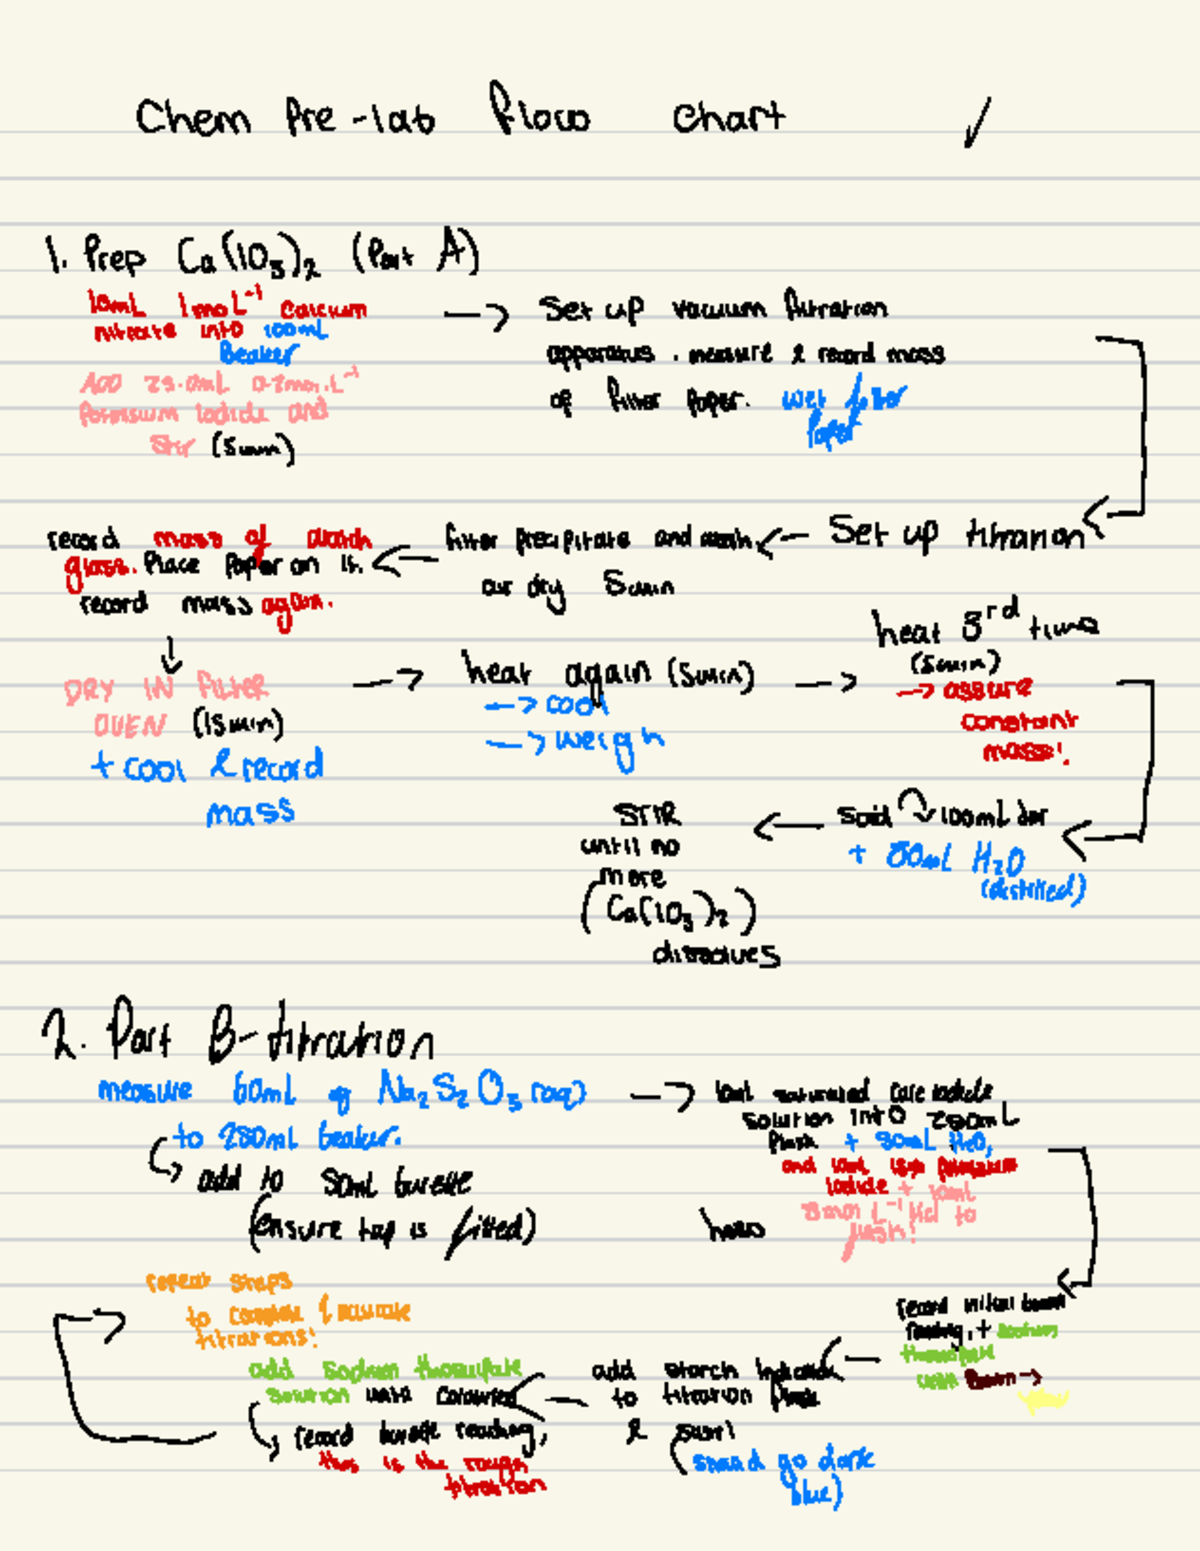 Chem Pre-lab flow chart
1. Prep Ca(IO3)2 (Part A)
10mL 1molL-1 calcium
nitrate into 100mL
Beaker
ADD 25.0mL 0.2mol.L-1
Potassium Iodide and
Stir (5min)
→ Set up vacuum filtration
apparatus. measure & record mass
of filter paper. wet filter
paper
Set up titration
← filter precipitate and wash
air dry 5min
← record mass of watch
glass. Place Paper on it.
record mass again.
↓
DRY IN FILTER
OVEN (15min)
+ cool & record
mass
→ heat again (5min)
→ cool
→ weigh
→ heat 3rd time
(5min)
→ assure
constant
mass!
← solid 100mL
+ 80mL H2O
(distilled)
← STIR
until no
more
(Ca(IO3)2)
dissolves
2. Part B-titration
measure 60mL of Na2S2O3 (aq)
to 250mL beaker.
add to 50mL burette
(ensure tap is fitted)
→ 10mL saturated
solution into 250mL
flask + 50mL H2O,
and 10mL potassium
Iodide + 10mL
L-1 HCl to
flash!
record initial
reading, + sodium
thiosulfate
until Brown →
yellow
← add starch indicator
to titration flask
& swirl
(should go dark
blue)
← add sodium thiosulfate
solution until colourless
record burette reading,
this is the rough
titration
→ repeat steps
to complete accurate
titrations!